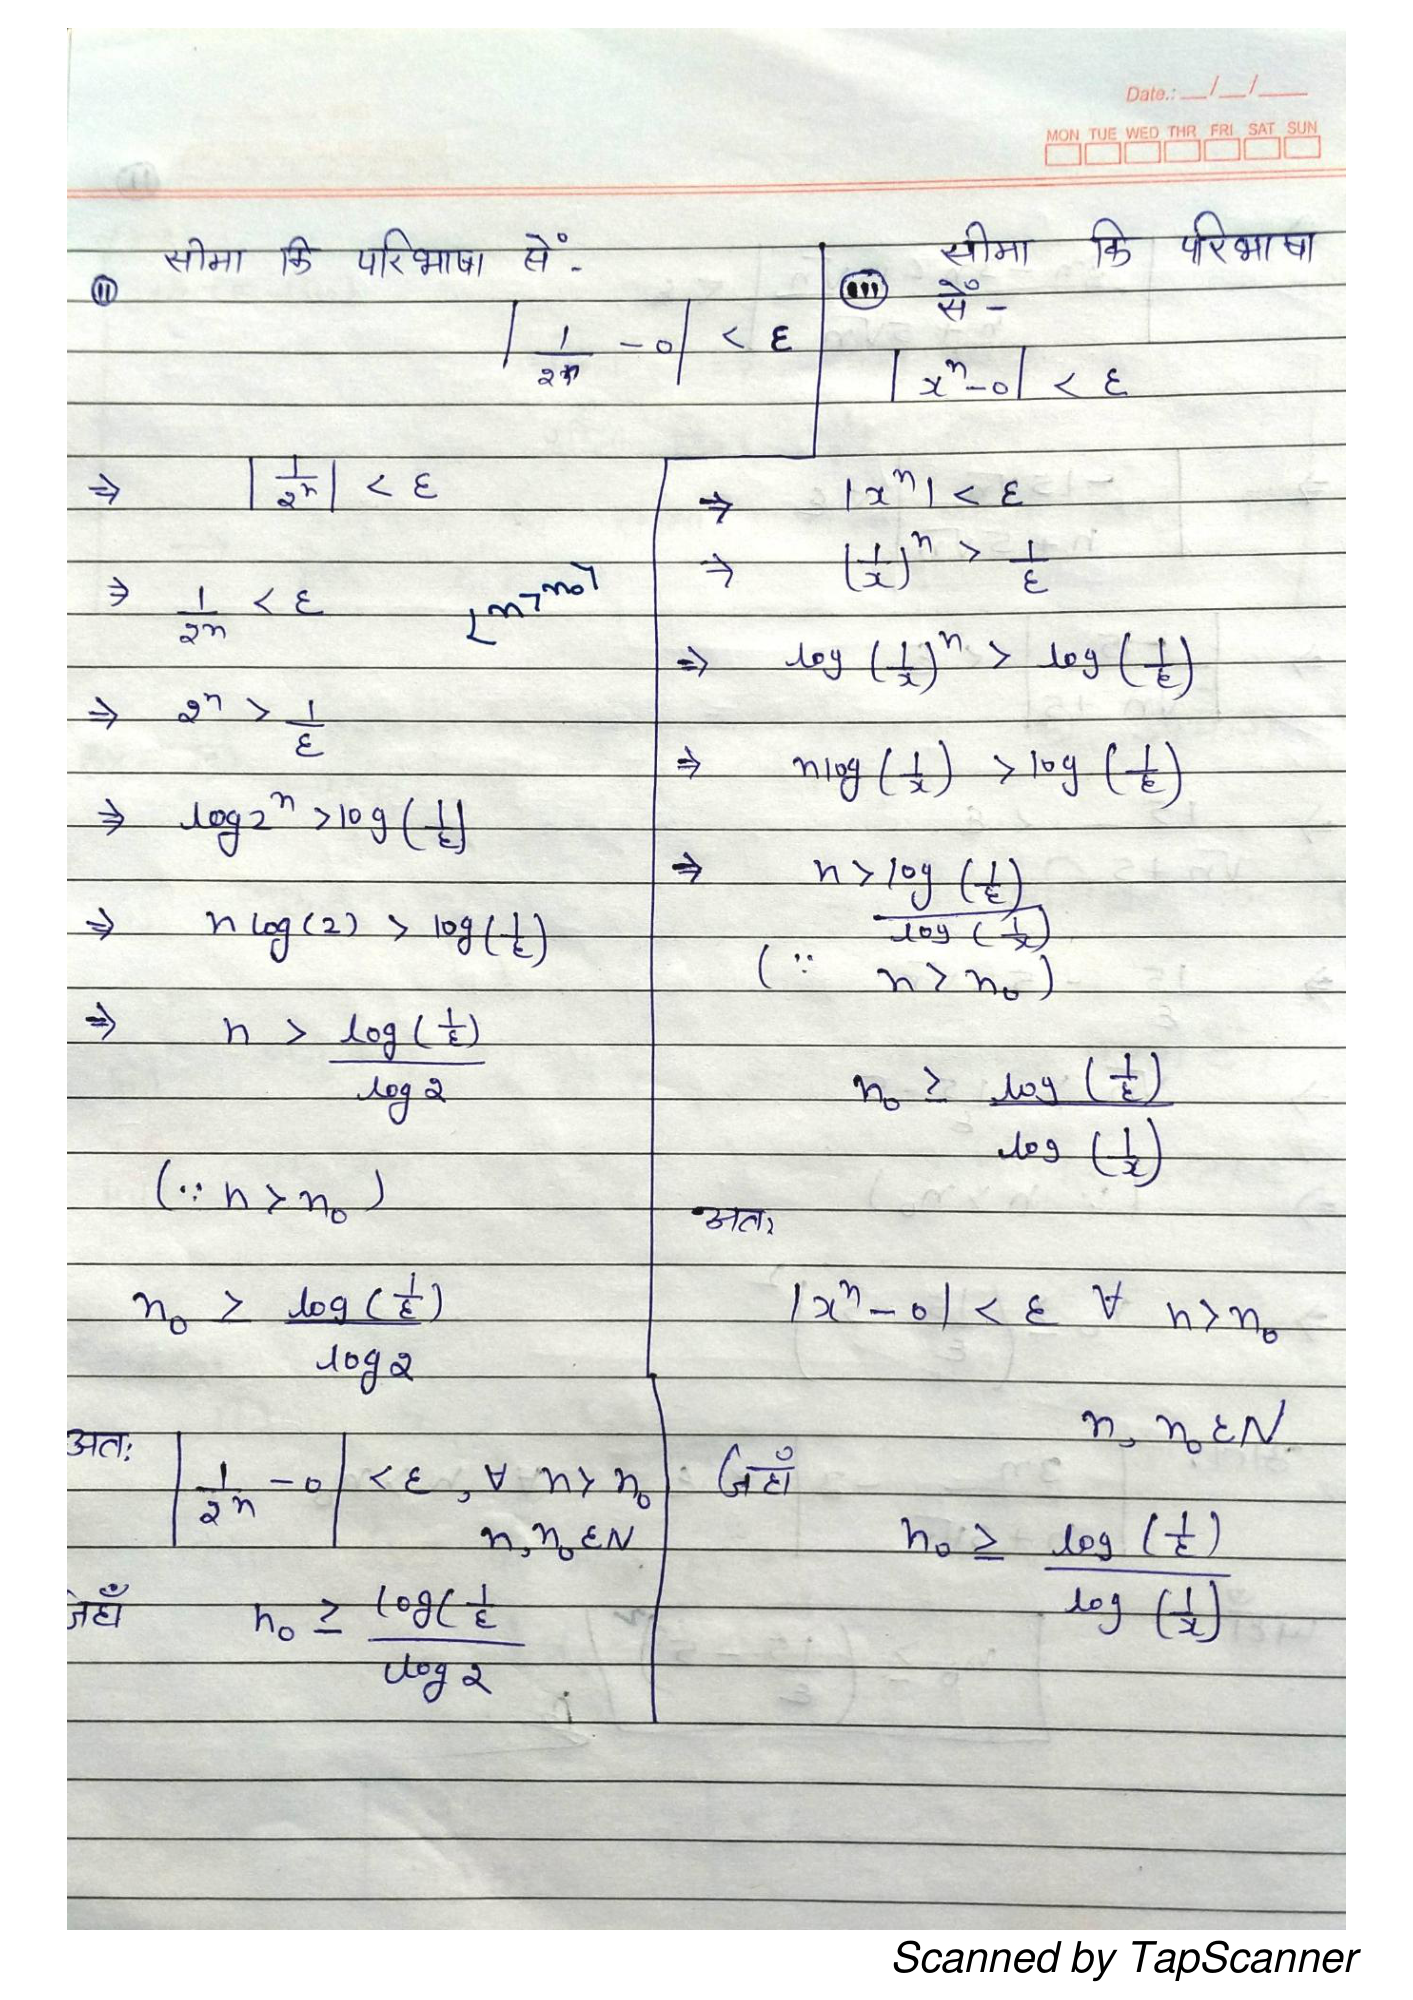 Date.: __/__/____
MON TUE WED THR FRI SAT SUN
सीमा कि परिभाषा सें -
(ii)
|1/2ⁿ - 0| < ε
⇒ |1/2ⁿ| < ε
⇒ 1/2ⁿ < ε [n > n₀]
⇒ 2ⁿ > 1/ε
⇒ log2ⁿ > log(1/ε)
⇒ n log(2) > log(1/ε)
⇒ n > log(1/ε) / log 2
(∵ n > n₀)
n₀ ≥ log(1/ε) / log 2
अतः |1/2ⁿ - 0| < ε, ∀ n > n₀
n, n₀ ∈ N
जहाँ n₀ ≥ log(1/ε / log 2
सीमा कि परिभाषा
(iii) सें -
|xⁿ - 0| < ε
⇒ |xⁿ| < ε
⇒ (1/x)ⁿ > 1/ε
⇒ log (1/x)ⁿ > log (1/ε)
⇒ n log (1/x) > log (1/ε)
⇒ n > log (1/ε) / log (1/x)
(∵ n > n₀)
n₀ ≥ log (1/ε) / log (1/x)
अतः
|xⁿ - 0| < ε ∀ n > n₀
n, n₀ ∈ N
जहाँ
n₀ ≥ log (1/ε) / log (1/x)
Scanned by TapScanner